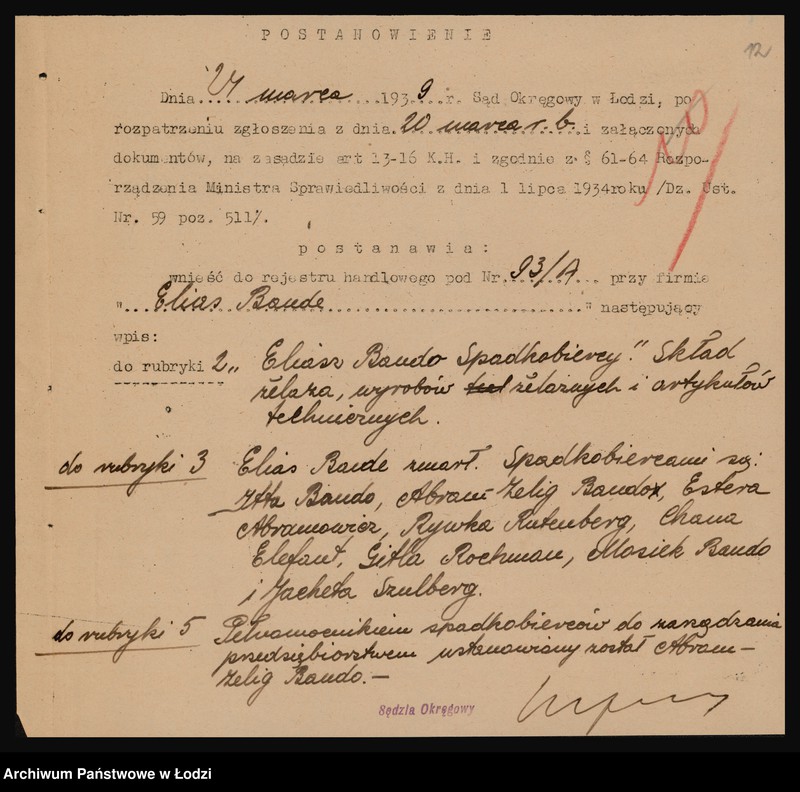 POSTANOWIENIE
12
Dnia 27 marca 1939 r. Sąd Okręgowy w Łodzi, po
rozpatrzeniu zgłoszenia z dnia 20 marca r. b. i załączonych
dokumentów, na zasadzie art 13-16 K.H. i zgodnie z § 61-64 Rozpo-
rządzenia Ministra Sprawiedliwości z dnia 1 lipca 1934roku /Dz. Ust.
Nr. 59 poz. 511/.
postanawia:
wnieść do rejestru handlowego pod Nr. 93/A przy firmie
"Elias Baude" następujący
wpis:
do rubryki 2 „Eliasz Bando Spadkobiercy". Skład
żelaza, wyrobów żelaznych i artykułów
technicznych.
do rubryki 3 Elias Baude zmarł. Spadkobiercami są:
Itta Bando, Abram-Zelig Bando, Estera
Abramowicz, Rywka Rutenberg, Chana
Elefant, Gitla Rochman, Mosiek Bando
i Jacheta Szulberg.
do rubryki 5 Pełnomocnikiem spadkobierców do zarządzania
przedsiębiorstwem ustanowiony został Abram-
Zelig Bando.-
Sędzia Okręgowy
Archiwum Państwowe w Łodzi